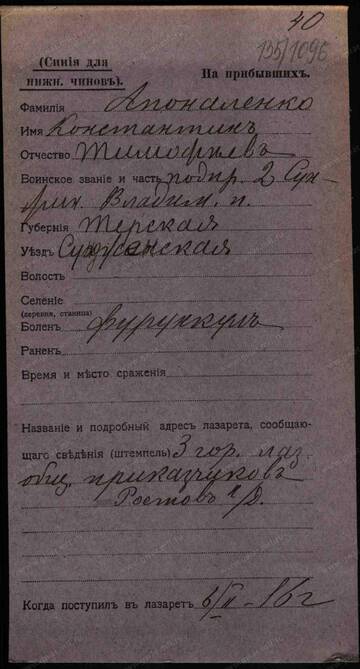 40
135/1096
(Синія для
нижн. чиновъ).
На прибывшихъ.
Фамилія Апоналенко
Имя Константинъ
Отчество Тимофѣевъ
Воинское званіе и часть подпр. 2 Сун-
Влади. п.
Губернія Терская
Уѣздъ Сунженская
Волость
Селеніе
(деревня, станица)
Боленъ фурункулъ
Раненъ
Время и мѣсто сраженія
Названіе и подробный адресъ лазарета, сообщаю-
щаго свѣдѣнія (штемпель) 3 гор. лаз.
общ. приказчиковъ
Ростовъ н/Д.
Когда поступилъ въ лазаретъ 6/II - 16 г